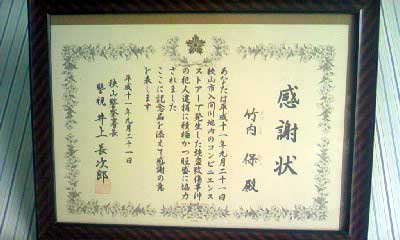 感謝状
竹内 保 殿
あなたは平成十一年九月二十一日
狭山市入間川地内のコンビニエンス
ストアーで発生した強盗致傷事件
の犯人逮捕に積極かつ旺盛に協力
されました
ここに記念品を添えて感謝の意
を表します
平成十一年九月二十一日
狭山警察署長
警視 井上長次郎